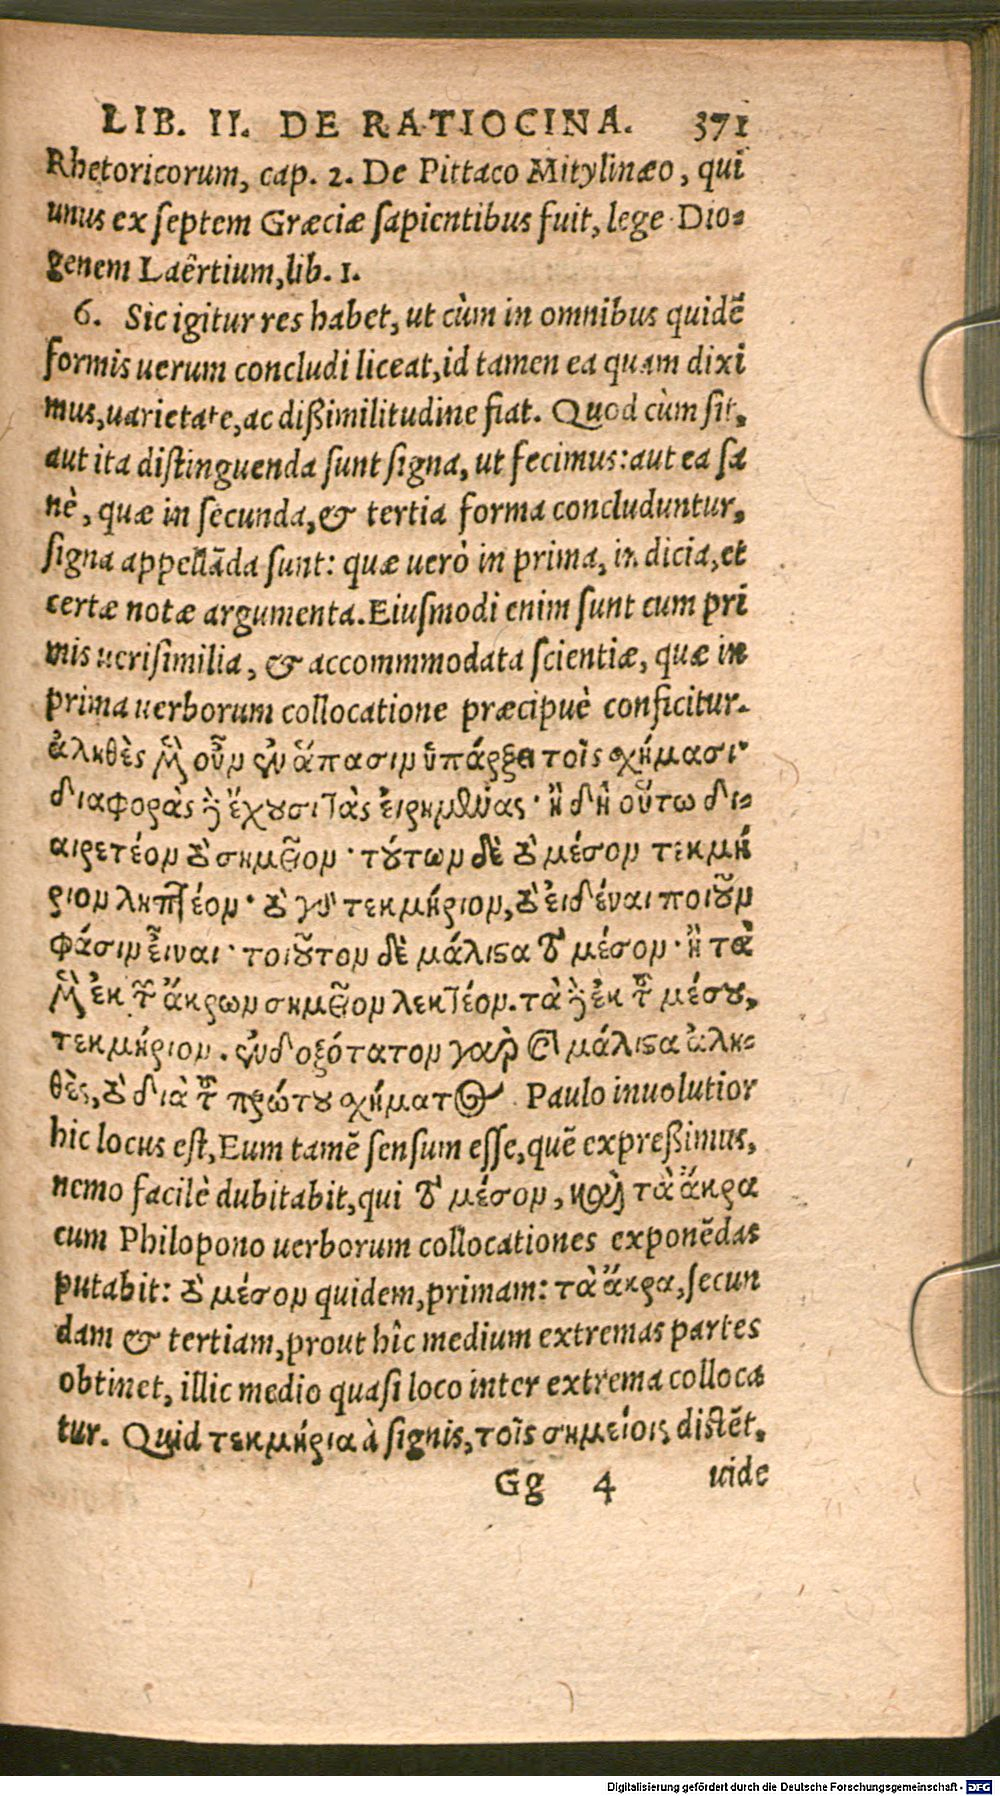 LIB. II. DE RATIOCINA. 371
Rhetoricorum, cap. 2. De Pittaco Mitylinæo, qui
unus ex septem Græciæ sapientibus fuit, lege Dio-
genem Laërtium, lib. 1.
6. Sic igitur res habet, ut cùm in omnibus quidẽ
formis uerum concludi liceat, id tamen ea quam dixi
mus, uarietate, ac dißimilitudine fiat. Quod cùm sit,
aut ita distinguenda sunt signa, ut fecimus: aut ea sa
nè, quæ in secunda, & tertia forma concluduntur,
signa appellãda sunt: quæ uerò in prima, indicia, et
certæ notæ argumenta. Eiusmodi enim sunt cum pri
mis uerisimilia, & accommmodata scientiæ, quæ in
prima uerborum collocatione præcipuè conficitur.
ἀληθὲς μὲν οὖν ἐν ἅπασιν ὑπάρξει τοῖς σχήμασι·
διαφορὰς δὲ ἔχουσι τὰς εἰρημένας· ἢ δὴ οὕτω δι-
αιρετέον τὸ σημεῖον· τούτων δὲ τὸ μέσον τεκμή
ριον ληπτέον· τὸ γὰρ τεκμήριον, τὸ εἰδέναι ποιοῦν
φάσιν εἶναι· τοιοῦτον δὲ μάλιστα τὸ μέσον· ἢ τὰ
μὲν ἐκ τῶν ἄκρων σημεῖον λεκτέον. τὰ δὲ ἐκ τοῦ μέσου,
τεκμήριον. ἐνδοξότατον γὰρ καὶ μάλιστα ἀλη-
θὲς, τὸ διὰ τοῦ πρώτου σχήματος Paulo inuolutior
hic locus est, Eum tamẽ sensum esse, quẽ expreßimus,
nemo facilè dubitabit, qui τὸ μέσον, καὶ τὰ ἄκρα
cum Philopono uerborum collocationes exponẽdas
putabit: τὸ μέσον quidem, primam: τὰ ἄκρα, secun
dam & tertiam, prout hîc medium extremas partes
obtinet, illic medio quasi loco inter extrema colloca
tur. Quid τεκμήρια à signis, τοῖς σημείοις distẽt,
Gg 4 uide
Digitalisierung gefördert durch die Deutsche Forschungsgemeinschaft - DFG